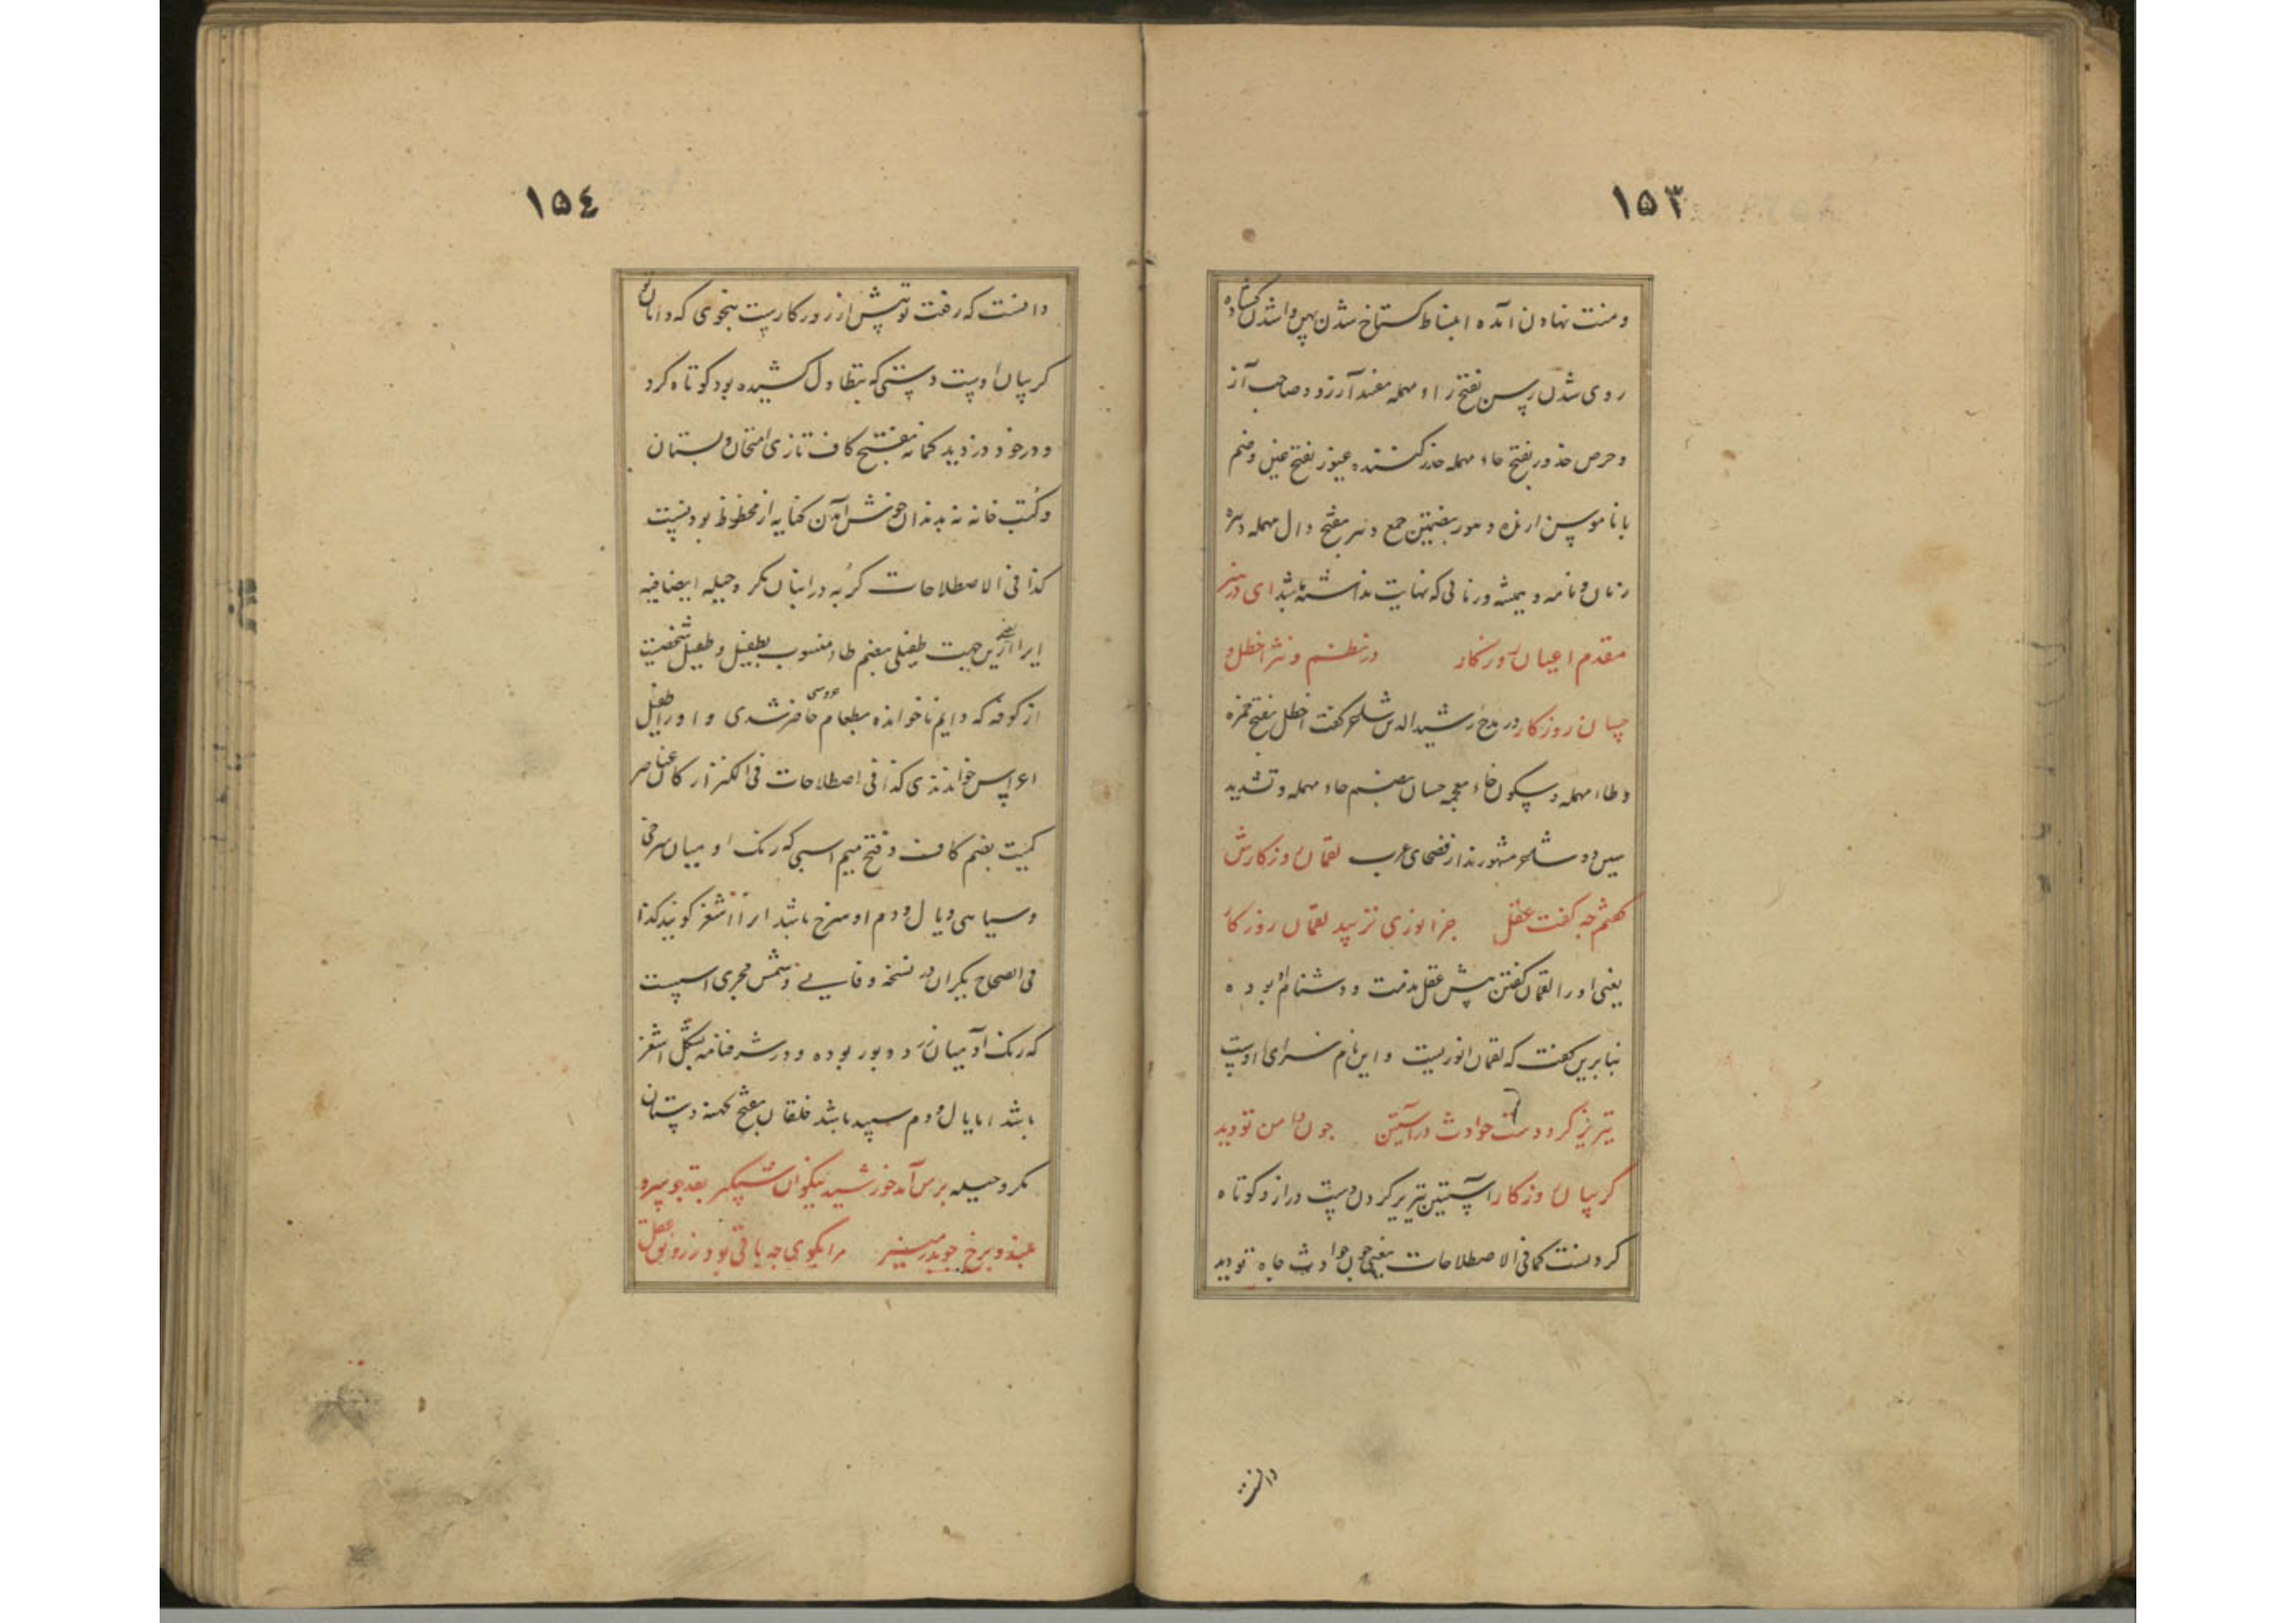 ١٥٣
ومنت نهادن آمده انبساط کستاخ شدن پس واشدن کشاده
روی شدن رسن بفتح راء مهمله مفند آرزو و صاحب آز
و حرص حذور بفتح حاء مهمله حذر کننده غیور بفتح غین وضم
با ناموس ازمنه و دهور بضمتین جمع دهر بفتح دال مهمله دهره
زمان و نامه و همیشه و زمانی که نهایت نداشته باشد ای در هنر
مقدم اعیان روزکار در نظم و نثر اخطل و
حسان روزکار در مدح رشیدالدین شاعر کفت اخطل بفتح همزه
و طاء مهمله و سکون خاء معجمه حسان بضم حاء مهمله و تشدید
سین دو شاعر مشهورند از فصحای عرب لقمان روزکارش
کفتم چه کفت عقل جز انوری نزیبد لقمان روزکار
یعنی او را لقمان کفتن پیش عقل مذمت و دشنام بوده
بنابرین کفت که لقمان انوریست و این نام سزای اوست
تیریز کرد دست حوادث در آستین چون دامن تو دید
کریبان روزکار آستین تیریز کردن دست دراز و کوتاه
کردنست کما فی الاصطلاحات یعنی چون حوادث جاه تو دید
دانست
١٥٤
دانست که رفت تو پیش از روزکارست بنحوی که دامان
کریبان اوست دستی که بتطاول کشیده بود کوتاه کرد
و در خود دزدید کمانه بفتح کاف تازی امتحان و بستان
و کتب خانه نه بدندان خوش آمدن کنایه از محظوظ بودنست
کذا فی الاصطلاحات کربه در انبان مکر و حیله ایضا فیه
ایرا ازین جهت طفیلی بضم طاء منسوب بطفیل و طفیل شخصیت
از کوفه که دایم ناخوانده بطعام عروسی حاضر شدی و او را طفیل
اعراس خواندندی کذا فی اصطلاحات فی الکنز ارکان عناصر
کمیت بضم کاف و فتح میم اسبی که رنک او میان سرخی
و سیاهی و یال و دم او سرخ باشد انرا اشغر کویند کذا
فی الصحاح یکران در نسخه وفایی و شمس فخری اسپست
که رنک او میان زرد و بور بوده و در شرفنامه بشکل اشغر
باشد اما یال و دم سپید باشد خلقان بفتح کهنه دستان
مکر و حیله برمن آمد خورشید نیکوان شبکیر بقد چو سرو
بلند و برخ چو بدر منیر مرا بکوی چه باقی بود ز رونق عقل